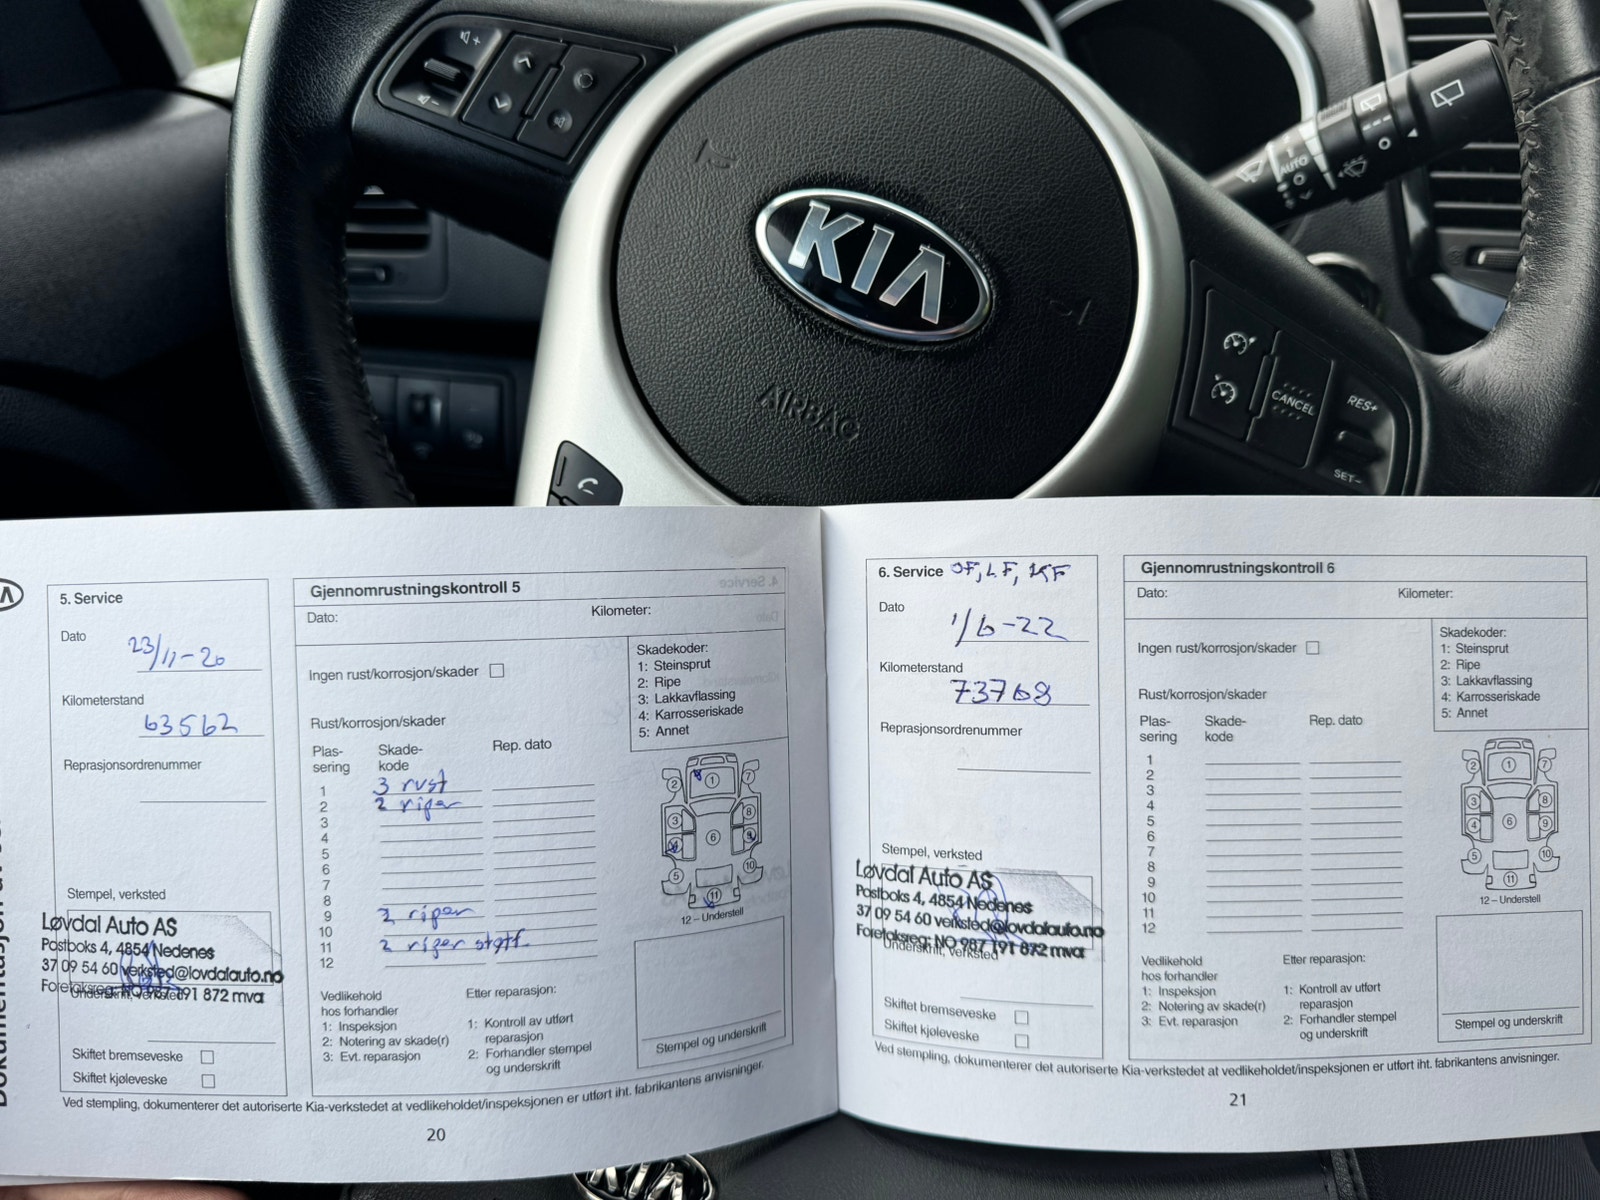 AUTO
KIA
AIRBAG
CANCEL
RES+
SET-
5. Service
Dato
23/11-20
Kilometerstand
63562
Reprasjonsordrenummer
Stempel, verksted
Løvdal Auto AS
Postboks 4, 4854 Nedenes
37 09 54 60 verksted@lovdalauto.no
Foretaksreg: NO 987 191 872 mva
Underskrift, verksted
Skiftet bremseveske
Skiftet kjøleveske
Gjennomrustningskontroll 5
Dato:
Kilometer:
Ingen rust/korrosjon/skader
Skadekoder:
1: Steinsprut
2: Ripe
3: Lakkavflassing
4: Karrosseriskade
5: Annet
Rust/korrosjon/skader
Plas-
sering
Skade-
kode
Rep. dato
1 3 rust
2 2 riper
3
4
5
6
7
8
9 2 riper
10
11 2 riper støtf.
12
1
2
3
4
5
6
7
8
9
10
11
12 – Understell
Vedlikehold
hos forhandler
1: Inspeksjon
2: Notering av skade(r)
3: Evt. reparasjon
Etter reparasjon:
1: Kontroll av utført
reparasjon
2: Forhandler stempel
og underskrift
Stempel og underskrift
Ved stempling, dokumenterer det autoriserte Kia-verkstedet at vedlikeholdet/inspeksjonen er utført iht. fabrikantens anvisninger.
20
6. Service OF, LF, KF
Dato
1/6-22
Kilometerstand
73768
Reprasjonsordrenummer
Stempel, verksted
Løvdal Auto AS
Postboks 4, 4854 Nedenes
37 09 54 60 verksted@lovdalauto.no
Foretaksreg: NO 987 191 872 mva
Underskrift, verksted
Skiftet bremseveske
Skiftet kjøleveske
Gjennomrustningskontroll 6
Dato:
Kilometer:
Ingen rust/korrosjon/skader
Skadekoder:
1: Steinsprut
2: Ripe
3: Lakkavflassing
4: Karrosseriskade
5: Annet
Rust/korrosjon/skader
Plas-
sering
Skade-
kode
Rep. dato
1
2
3
4
5
6
7
8
9
10
11
12
1
2
3
4
5
6
7
8
9
10
11
12 – Understell
Vedlikehold
hos forhandler
1: Inspeksjon
2: Notering av skade(r)
3: Evt. reparasjon
Etter reparasjon:
1: Kontroll av utført
reparasjon
2: Forhandler stempel
og underskrift
Stempel og underskrift
Ved stempling, dokumenterer det autoriserte Kia-verkstedet at vedlikeholdet/inspeksjonen er utført iht. fabrikantens anvisninger.
21
KIA